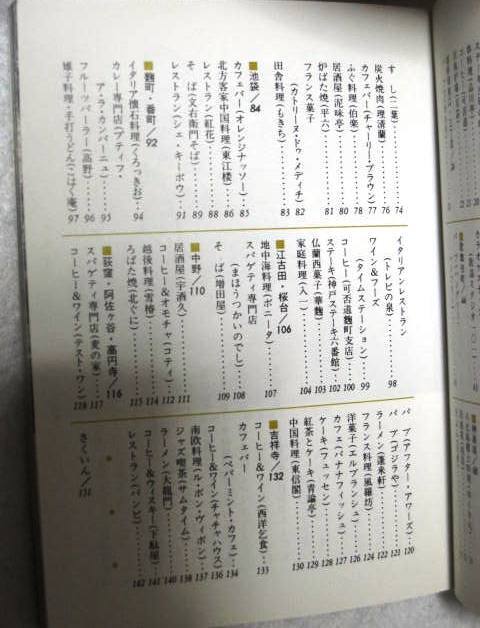 す し(二葉)……74
炭火焼肉(理清蘭)……76
カフェバー(チャーリー・ブラウン)……77
ふぐ料理(伯楽)……78
居酒屋(泥味亭)……80
炉ばた焼(平六)……81
フランス菓子
(カトリーヌ・ドゥ・メディチ)……82
田舎料理(もきち)……83
■池袋/84
カフェバー(オレンジナッソー)……85
北方客家中国料理(東江楼)……86
レストラン(紅花)……88
そ ば(文右衛門そば)……89
レストラン(シェ・キーボウ)……91
■麹町・一番町/92
イタリア懐石料理(くろっきお)……94
カレー専門店(アティフ・
ア・ラ・カンパーニュ)……95
フルーツパーラー(高野)……96
雉子料理・手打うどん(こはく庵)……97
イタリアンレストラン
(トレビの泉)……98
ワイン&フーズ
(タイムステーション)……99
コーヒー(可否道麹町支店)……100
ステーキ(神戸ステーキ六番館)……102
仏蘭西菓子(華麴)……103
家庭料理(入一)……104
■江古田・桜台/106
地中海料理(ボニータ)……107
スパゲティ専門店
(まほうつかいのでし)……108
そ ば(増田屋)……109
■中野/110
居酒屋(宇酒久)……111
コーヒー&オモチャ(コティ)……112
越後料理(雪椿)……114
ろばた焼(北ぐに)……115
■荻窪・阿佐ヶ谷・高円寺/116
スパゲティ専門店(麦の家)……117
コーヒー&ワイン(テスト・ワン)……118
パ ブ(アフター・アワーズ)……120
パ ブ(ゴジラや)……121
ラーメン(蓬来軒)……122
フランス料理(風羅坊)……124
洋菓子(エルブランシュ)……126
カフェ(バナナフィッシュ)……127
ケーキ(フュッセン)……128
紅茶とケーキ(青諭亭)……129
中国料理(東信閣)……130
■吉祥寺/132
コーヒー&ワイン(西洋乞食)……133
カフェバー
(ペパーミント・カフェ)……134
コーヒー&ワイン(チャチャハウス)……136
南欧料理(ル・ボン・ヴィボン)……137
ジャズ喫茶(サムタイム)……138
ラーメン(大龍門)……140
コーヒー&ウィスキー(下駄屋)……141
レストラン(バンビ)……142
さくいん/131